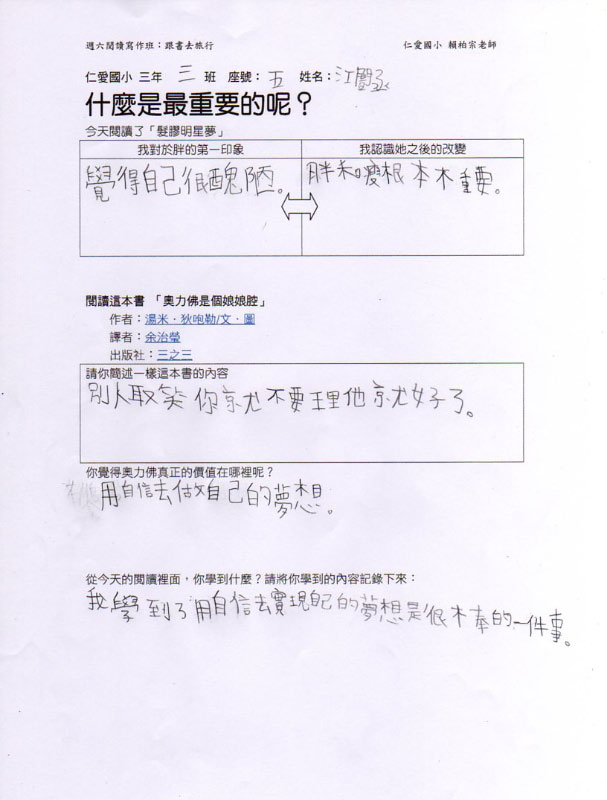 週六閱讀寫作班：跟書去旅行 仁愛國小 賴柏宗老師
仁愛國小 三年 三 班 座號： 五 姓名： 江
什麼是最重要的呢？
今天閱讀了「髮膠明星夢」
我對於胖的第一印象 我認識她之後的改變
覺得自己很醜陋。 胖和瘦根本不重要。
閱讀這本書 「奧力佛是個娘娘腔」
作者：湯米．狄咆勒/文．圖
譯者：余治瑩
出版社：三之三
請你簡述一樣這本書的內容
別人取笑你就不要理他就好了。
你覺得奧力佛真正的價值在哪裡呢？
用自信去做自己的夢想。
從今天的閱讀裡面，你學到什麼？請將你學到的內容記錄下來：
我學到了用自信去實現自己的夢想是很棒的一件事。